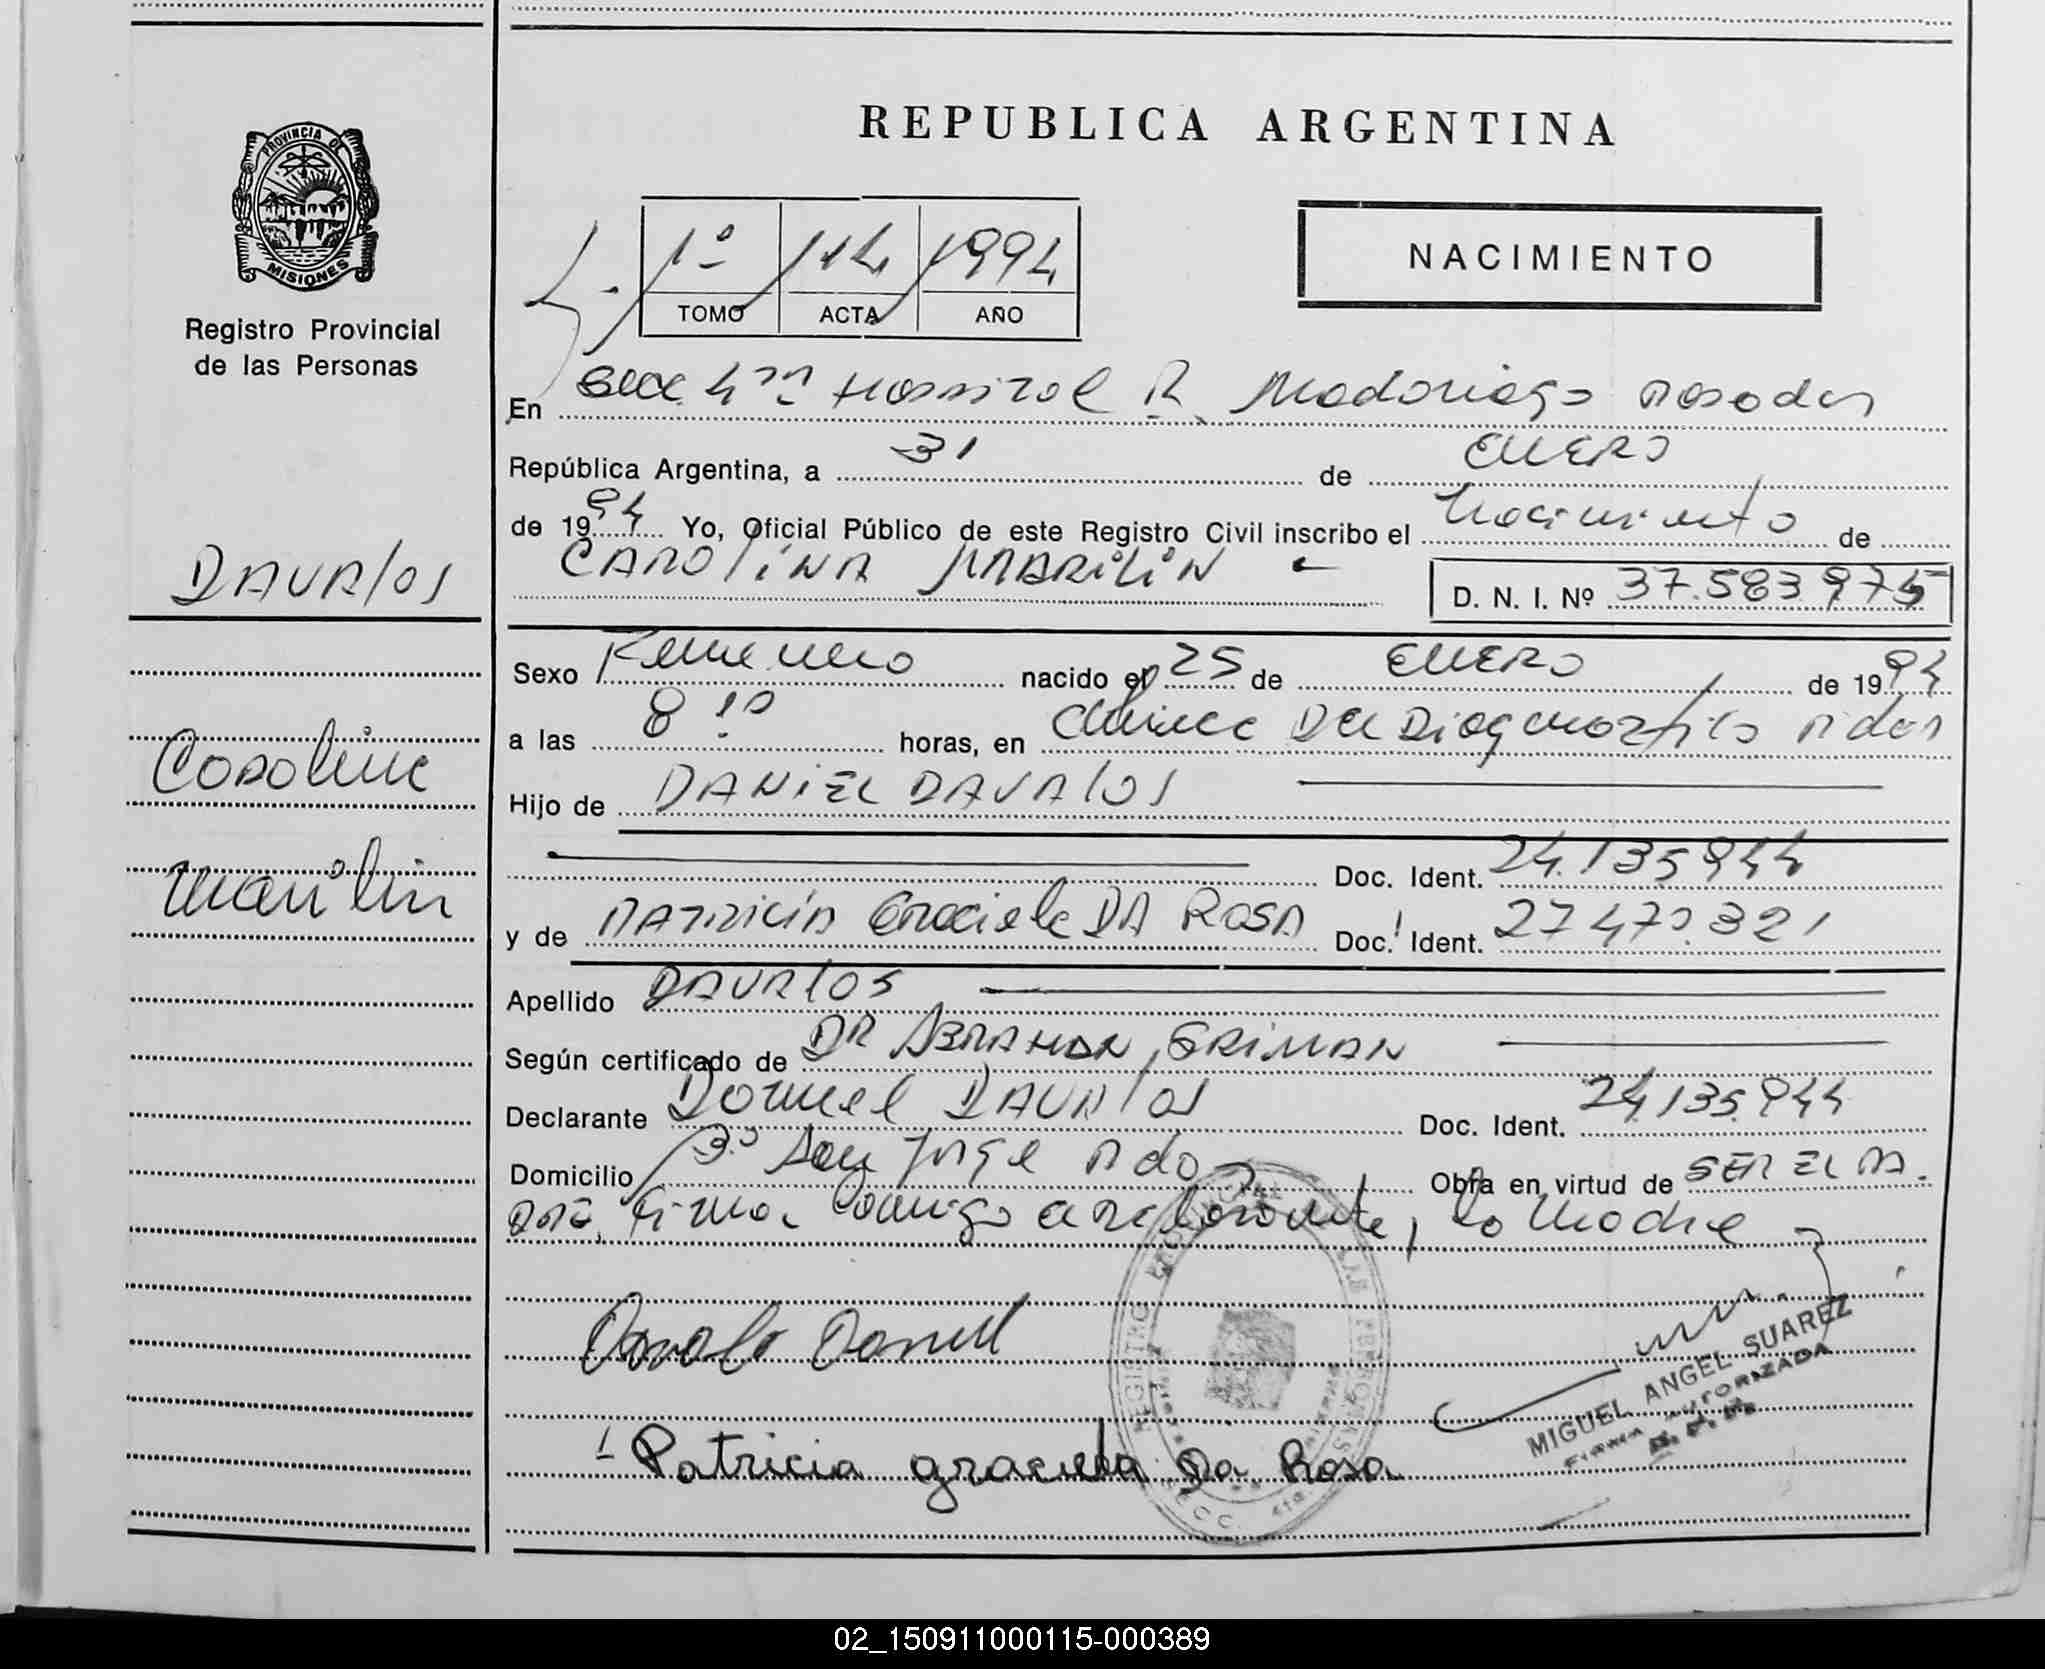 REPUBLICA ARGENTINA
PROVINCIA DE
MISIONES
Registro Provincial
de las Personas
1º 114 1994
TOMO ACTA AÑO
NACIMIENTO
En Secc 4ta Hospital R. Madariaga Posadas
República Argentina, a 31 de ENERO
de 1994 Yo, Oficial Público de este Registro Civil inscribo el Nacimiento de
CAROLINA MARILIN
D. N. I. Nº 37.583.975
DAVALOS
Carolina
Marilin
Sexo Femenino nacido el 25 de ENERO de 1994
a las 8 10 horas, en Clinica Del Diagnostico Pdas
Hijo de DANIEL DAVALOS
Doc. Ident. 24.135.944
y de PATRICIA Graciela DA ROSA Doc. Ident. 27.470.321
Apellido DAVALOS
Según certificado de DR ABRAHAM GRIMAN
Declarante Daniel DAVALOS Doc. Ident. 24.135.944
Domicilio Bº San Jorge Pdas Obra en virtud de SER EL PA
DRE, Firma Conmigo el declarante, la Madre
Davalo Daniel
MIGUEL ANGEL SUAREZ
FIRMA AUTORIZADA
Patricia graciela Da Rosa
02_150911000115-000389